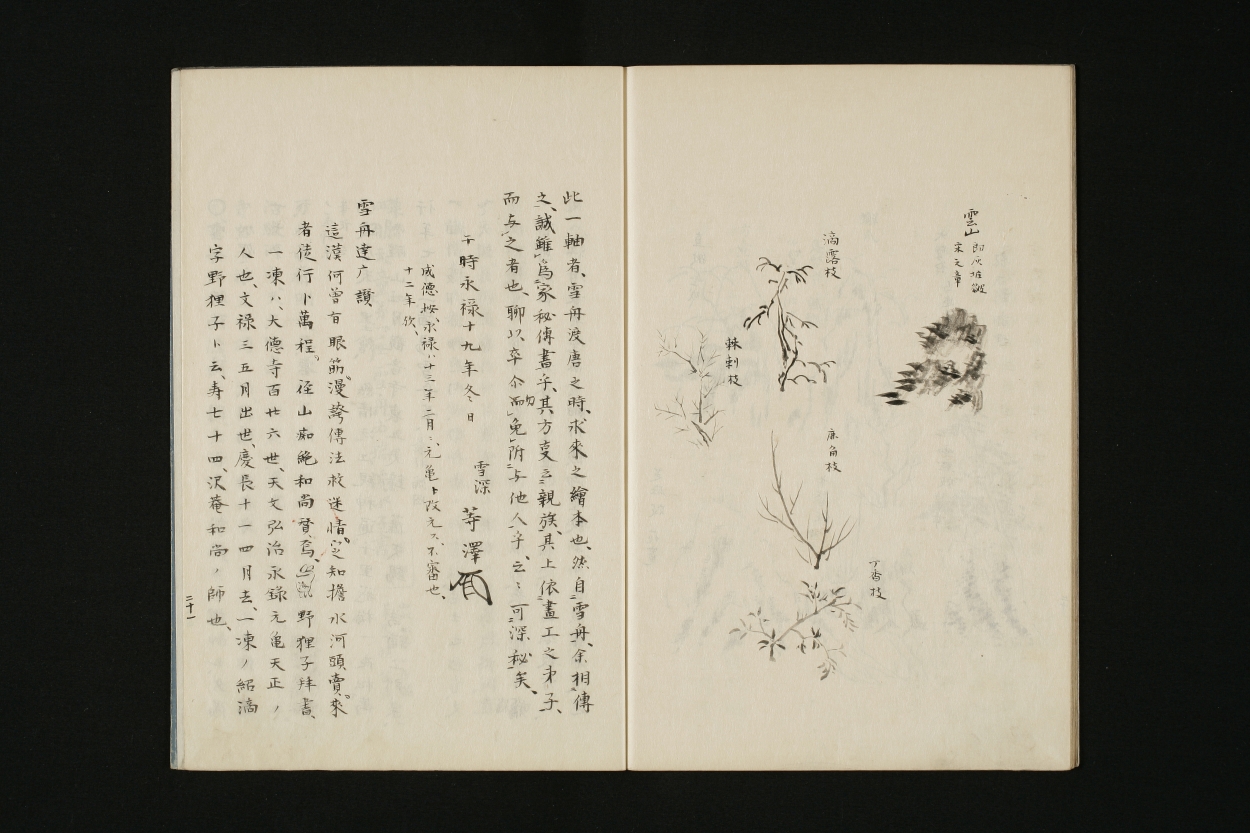 雲山 即灰堆皴
宋文章
滴露枝
棘刺枝
鹿角枝
丁香枝
此一軸者、雪舟渡唐之時、求來之繪本也、然自雪舟、余相傳
之、誠雖為家秘傳書、其方 親族、其上依畫工之弟子、
而与之者也、聊以卒尓 免附与他人、云々、可深秘矣、
于時永禄十九年冬日
雪深 等澤
成德按、永禄ハ十三年二月ニ、元亀ト改元ス、不審也、
十二年欤、
雪舟達广讚
這漢何曾有眼筋、漫誇傳法救迷情、 知擔水河頭賣、來
者徒行卜萬程。徑山痴絶和尚賛焉、 野狸子拜書、
一凍ハ、大德寺百廿六世、天文弘治永録元亀天正ノ
人也、文禄三五月出世、慶長十一四月去、一凍ノ紹滴
字野狸子ト云、寿七十四、沢菴和尚ノ師也、
二十一